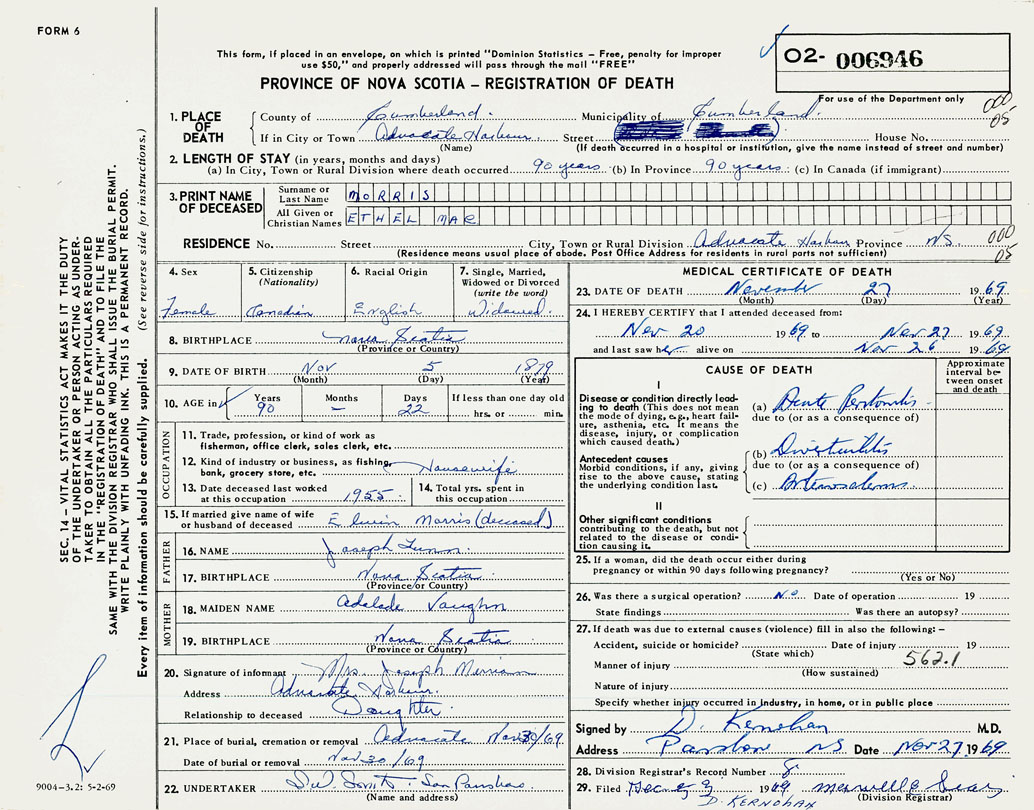 FORM 6
This form, if placed in an envelope, on which is printed "Dominion Statistics – Free, penalty for improper
use $50," and properly addressed will pass through the mail "FREE"
PROVINCE OF NOVA SCOTIA – REGISTRATION OF DEATH
O2- 006946
For use of the Department only
000
05
1. PLACE OF DEATH
County of Cumberland. Municipality of Cumberland.
If in City or Town Advocate Harbour. Street House No.
(Name) (If death occurred in a hospital or institution, give the name instead of street and number)
2. LENGTH OF STAY (in years, months and days)
(a) In City, Town or Rural Division where death occurred 90 years (b) In Province 90 years (c) In Canada (if immigrant)
3. PRINT NAME OF DECEASED
Surname or Last Name MORRIS
All Given or Christian Names ETHEL MAE
RESIDENCE No. Street City, Town or Rural Division Advocate Harbour Province NS. 000
05
(Residence means usual place of abode. Post Office Address for residents in rural parts not sufficient)
4. Sex
Female
5. Citizenship
(Nationality)
Canadian
6. Racial Origin
English
7. Single, Married,
Widowed or Divorced
(write the word)
Widowed.
8. BIRTHPLACE Nova Scotia
(Province or Country)
9. DATE OF BIRTH Nov 5 1879
(Month) (Day) (Year)
10. AGE in
Years Months Days If less than one day old
90 – 22 hrs. or min.
OCCUPATION
11. Trade, profession, or kind of work as
fishermon, office clerk, sales clerk, etc.
12. Kind of industry or business, as fishing,
bank, grocery store, etc. Housewife
13. Date deceased last worked
at this occupation 1955
14. Total yrs. spent in
this occupation
15. If married give name of wife
or husband of deceased Elwin Morris (deceased)
FATHER
16. NAME Joseph
17. BIRTHPLACE Nova Scotia
(Province/or Country)
MOTHER
18. MAIDEN NAME Adelade Vaughn
19. BIRTHPLACE Nova Scotia
(Province or Country)
20. Signature of informant Mrs. Joseph Merriam
Address Advocate Harbour.
Relationship to deceased Daughter.
21. Place of burial, cremation or removal Advocate Nov 30/69
Date of burial or removal Nov 30/69
22. UNDERTAKER D.W. Smith
(Name and address)
MEDICAL CERTIFICATE OF DEATH
23. DATE OF DEATH November 27 1969.
(Month) (Day) (Year)
24. I HEREBY CERTIFY that I attended deceased from:
Nov 20 1969 to Nov 27 1969.
and last saw her alive on Nov 26 1969.
CAUSE OF DEATH
Approximate
interval be-
tween onset
and death
I
Disease or condition directly lead-
ing to death (This does not
mean the mode of dying, e.g., heart fail-
ure, asthenia, etc. It means the
disease, injury, or complication
which caused death.)
(a) Acute Peritonitis
due to (or as a consequence of)
Antecedent causes
Morbid conditions, if any, giving
rise to the above cause, stating
the underlying condition last.
(b) Diverticulitis
due to (or as a consequence of)
(c)
II
Other significant conditions
contributing to the death, but not
related to the disease or condi-
tion causing it.
25. If a woman, did the death occur either during
pregnancy or within 90 days following pregnancy?
(Yes or No)
26. Was there a surgical operation? No Date of operation 19
State findings Was there an autopsy?
27. If death was due to external causes (violence) fill in also the following: –
Accident, suicide or homicide? Date of injury 19
(State which)
Manner of injury 562.1
(How sustained)
Nature of injury
Specify whether injury occurred in industry, in home, or in public place
Signed by D. Kernohan M.D.
Address Parrsboro NS. Date Nov 27 1969
28. Division Registrar's Record Number 8
29. Filed Dec 1969
(Division Registrar)
D. KERNOHAN
SEC. 14 – VITAL STATISTICS ACT MAKES IT THE DUTY
OF THE UNDERTAKER OR PERSON ACTING AS UNDER-
TAKER TO OBTAIN ALL THE PARTICULARS REQUIRED
IN THE "REGISTRATION OF DEATH" AND TO FILE THE
SAME WITH THE DIVISION REGISTRAR WHO SHALL ISSUE THE BURIAL PERMIT.
WRITE PLAINLY WITH UNFADING INK. THIS IS A PERMANENT RECORD.
Every item of information should be carefully supplied. (See reverse side for instructions.)
9004–3.2: 5-2-69